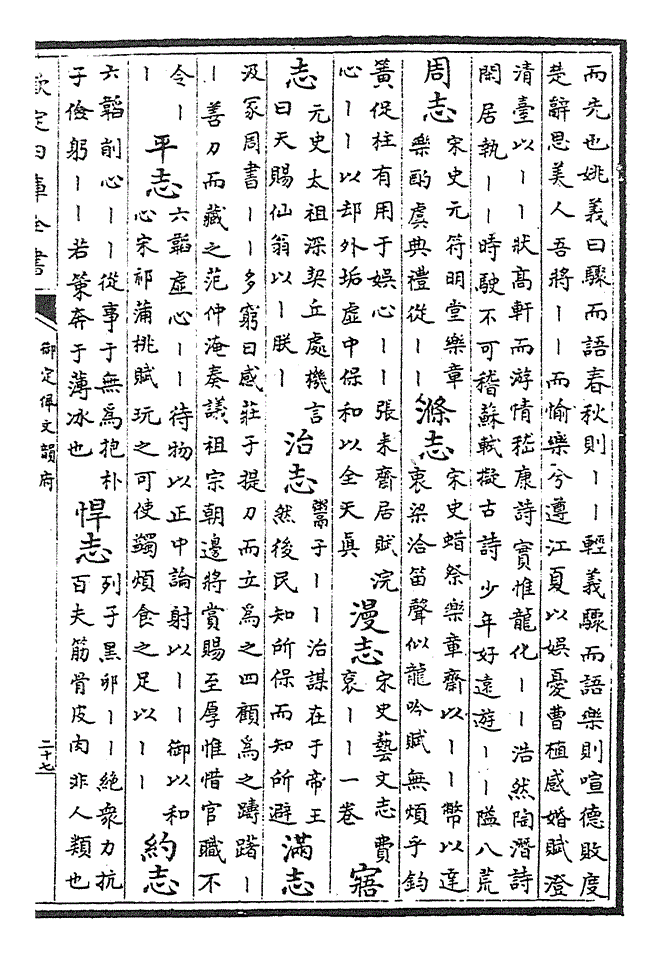 而先也姚義曰驟而語春秋則丨丨輕義驟而語樂則喧德敗度
楚辭思美人吾將丨丨而愉樂兮遵江夏以娛憂曹植感婚賦澄
清臺以丨丨狀高軒而游情嵇康詩實惟龍化丨丨浩然陶潛詩
閑居執丨丨時駛不可稽蘇軾擬古詩少年好遠遊丨丨隘八荒
周志
宋史元符明堂樂章
樂酌虞典禮從丨丨
滌志
宋史蜡祭樂章齋以丨丨幣以達
衷梁洽笛聲似龍吟賦無煩乎鈞
簧促柱有用于娛心丨丨張耒齋居賦浣
心丨丨以却外垢虛中保和以全天真
漫志
宋史藝文志費
衮丨丨一卷
寤
志
元史太祖深契丘處機言
曰天賜仙翁以丨朕丨
治志
鬻子丨丨治謀在于帝王
然後民知所保而知所避
滿志
汲冢周書丨丨多窮曰感莊子提刀而立為之四顧為之躊躇丨
丨善刀而藏之范仲淹奏議祖宗朝邊將賞賜至厚惟惜官職不
令丨
丨
平志
六韜虛心丨丨待物以正中論射以丨丨御以和
心宋祁蒲桃賦玩之可使蠲煩食之足以丨丨
約志
六韜削心丨丨從事于無為抱朴
子儉躬丨丨若策奔于薄冰也
悍志
列子黑卵丨丨絕衆力抗
百夫筋骨皮肉非人類也
欽定四庫全書
御定佩文韻府
二十七